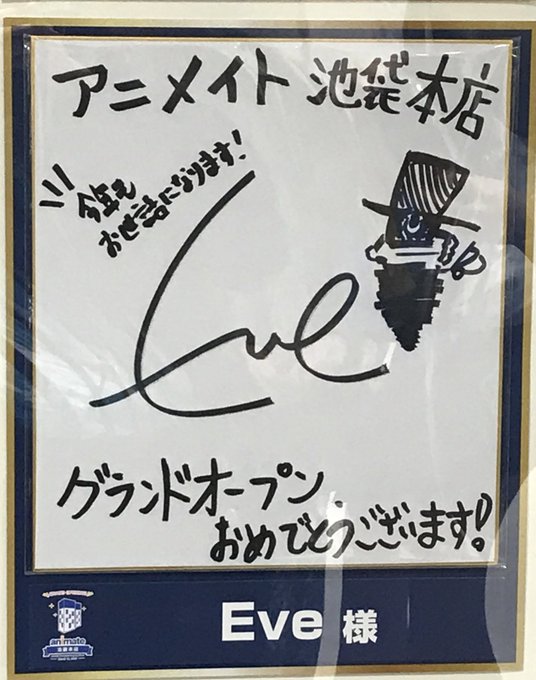 アニメイト 池袋本店
今年も
お世話になります!
Eve
グランドオープン、
おめでとうございます!
animate
池袋本店
Eve 様